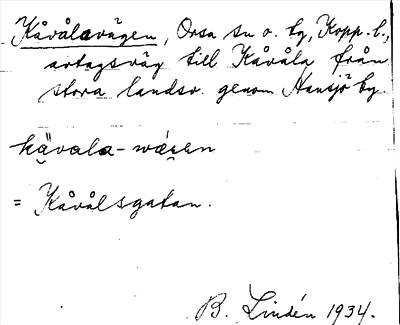 Kåvålavägen, Orsa sn o. tg, Kopp. l.,
avtagsväg till Kåvåla från
stora landsv. genom Hansjö by.
kävala-wäɡen
= Kåvålsgatan.
B. Lindén 1934.